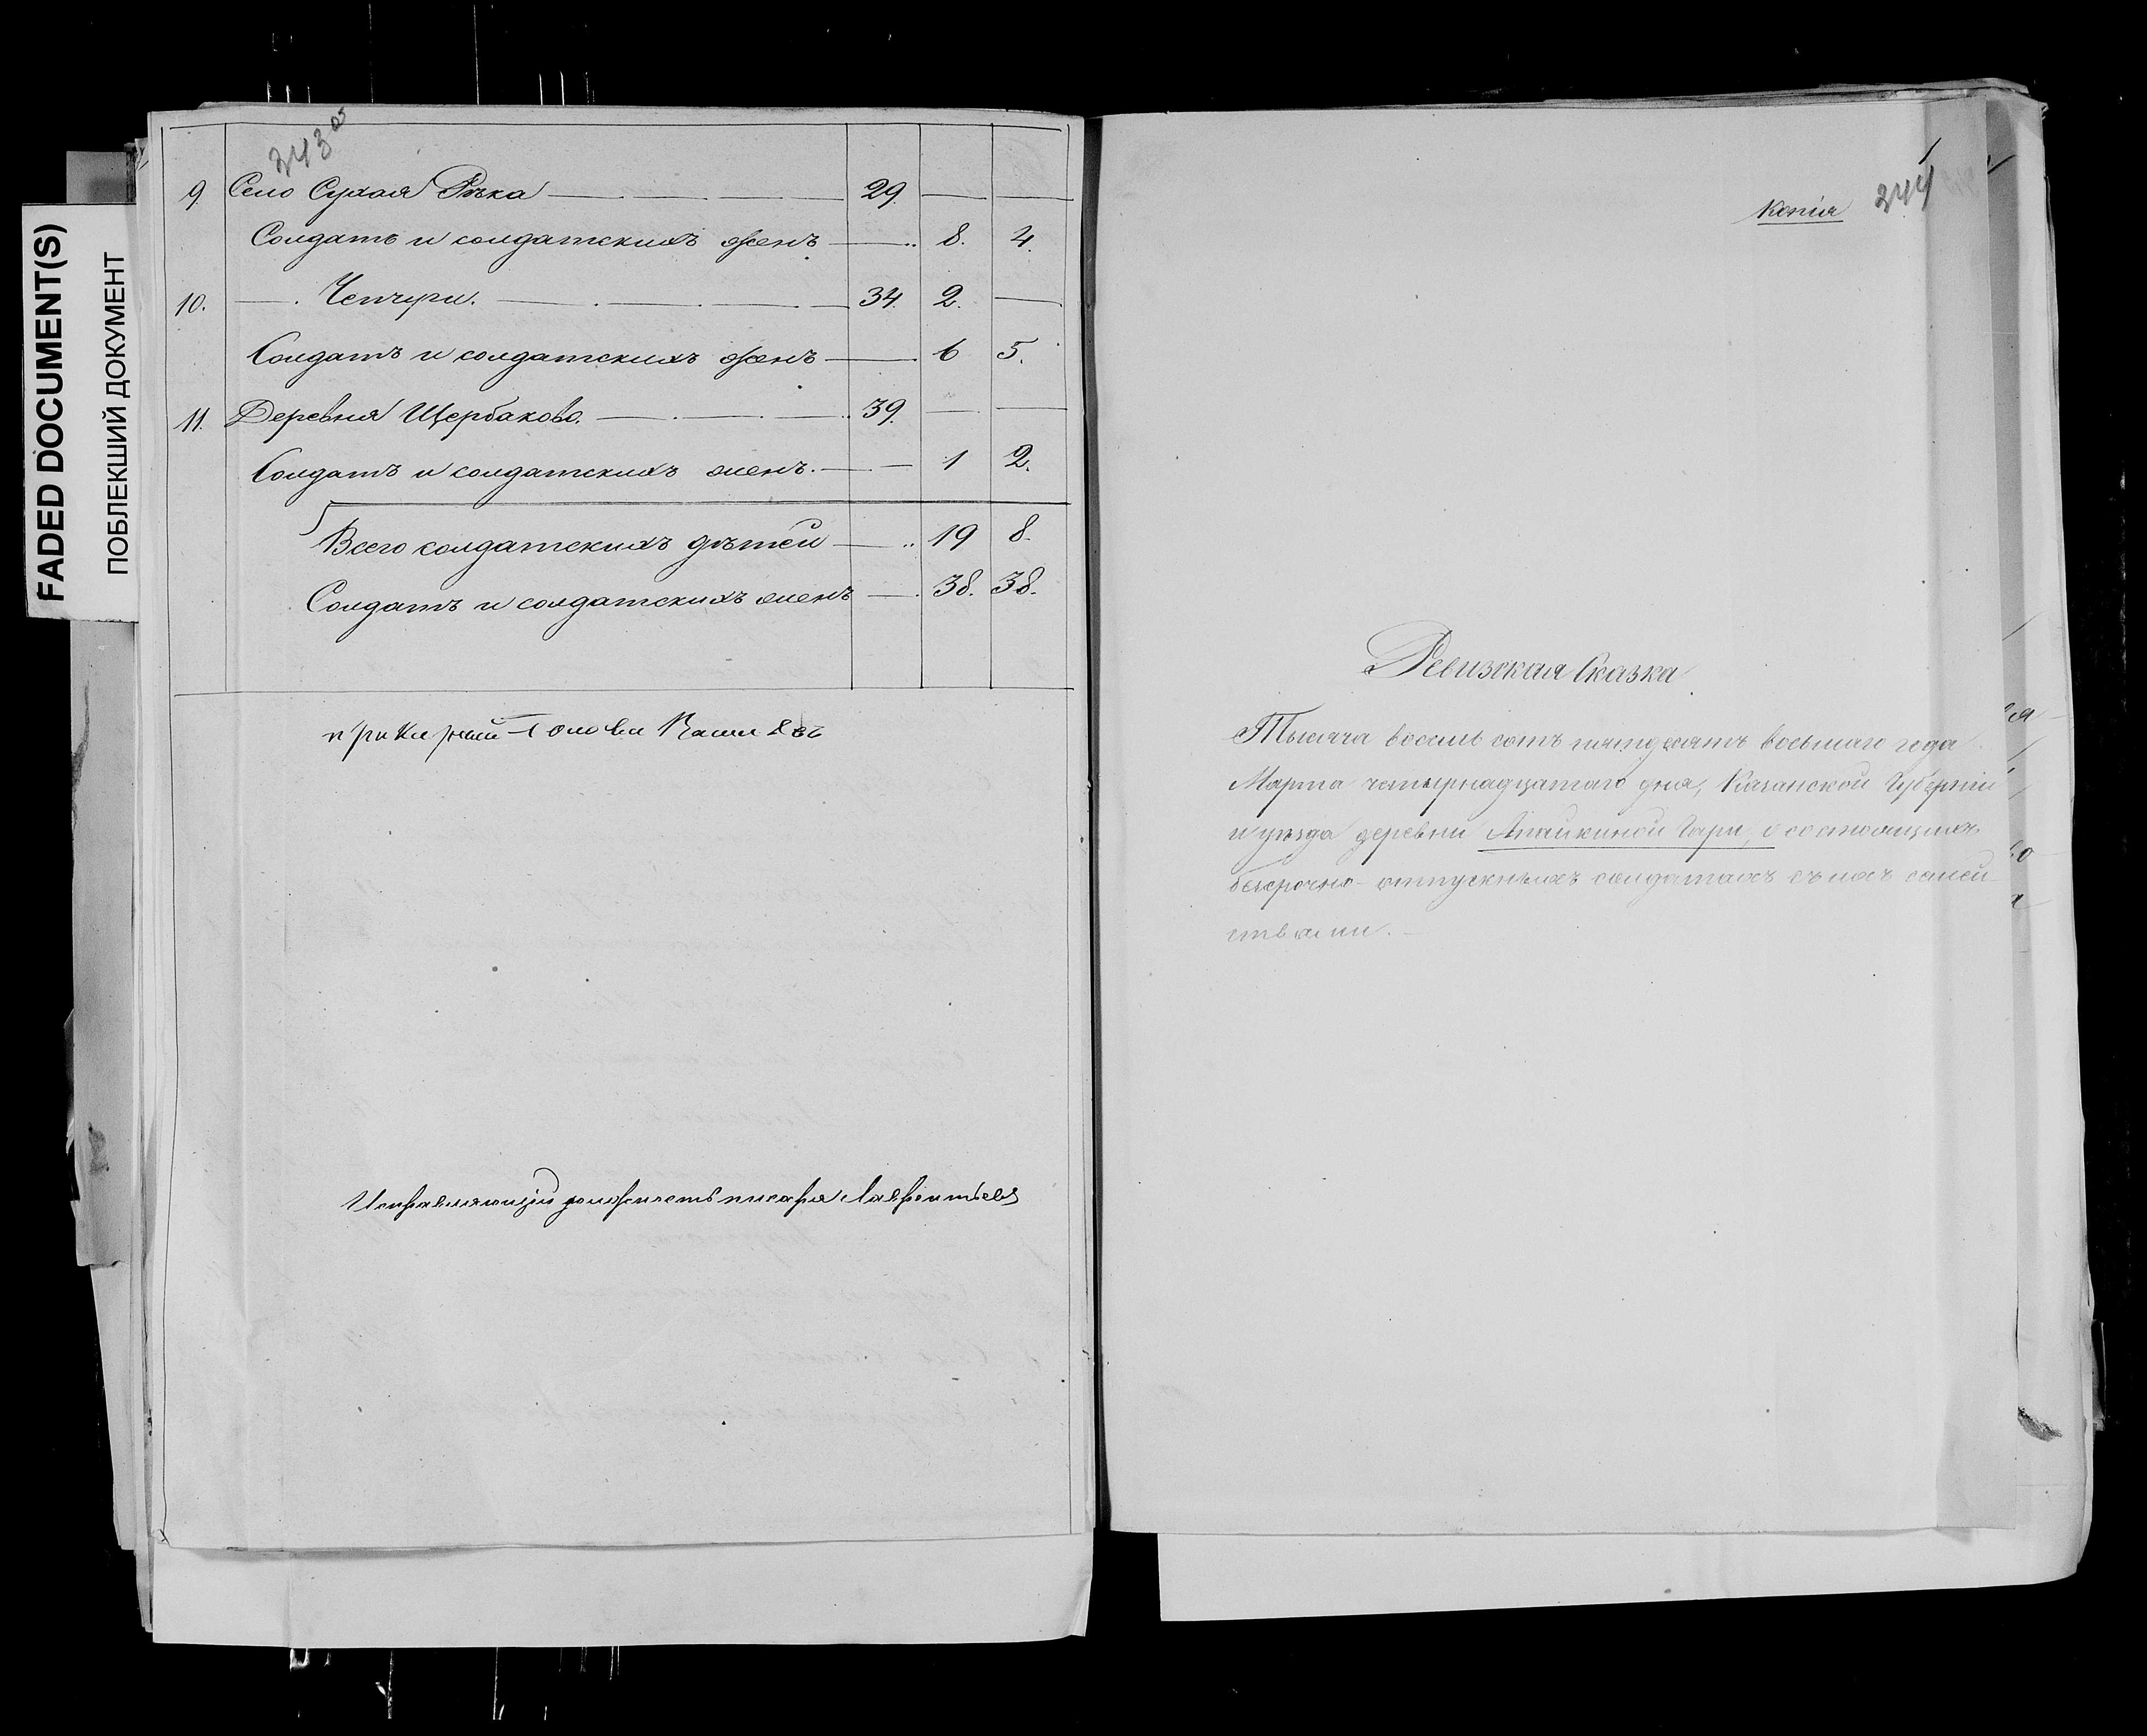 FADED DOCUMENT(S)
ПОБЛЕКШИЙ ДОКУМЕНТ
243 об
9. Село Сухая Рѣка 29. — —
Солдатъ и солдатскихъ женъ — 8. 4.
10. — Чепчуги. 34. 2. —
Солдатъ и солдатскихъ женъ — 6 5.
11. Деревня Щербаково. 39. — —
Солдатъ и солдатскихъ женъ. — 1 2.
Всего солдатскихъ дѣтей — 19 8.
Солдатъ и солдатскихъ женъ — 38. 38.
Голова
Исправляющій должность писаря Лаврентьевъ
244
Копія
Ревизская Сказка
Тысяча восемь сотъ пятьдесятъ восьмаго года
Марта четырнадцатаго дня, Казанской Губерніи
и уѣзда деревни Апайкиной Гари, о состоящихъ
безсрочно-отпускныхъ солдатахъ съ ихъ семей
ствами.